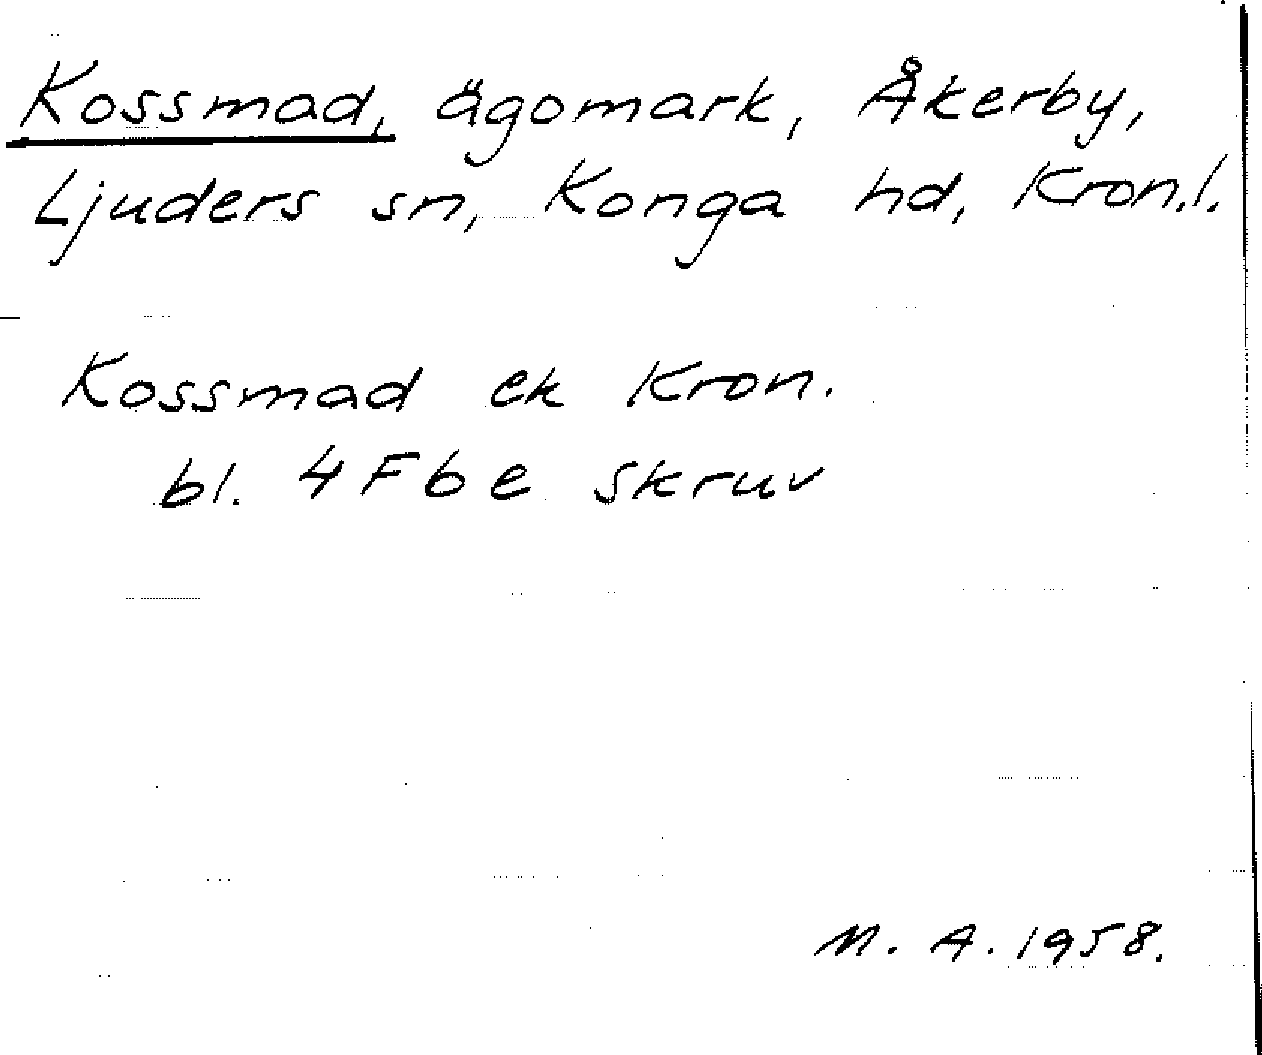 Kossmad, ägomark, Åkerby,
Ljuders sn, Konga hd, Kron.l.
Kossmad ek Kron.
bl. 4 F b e Skruv
M. A. 1958.